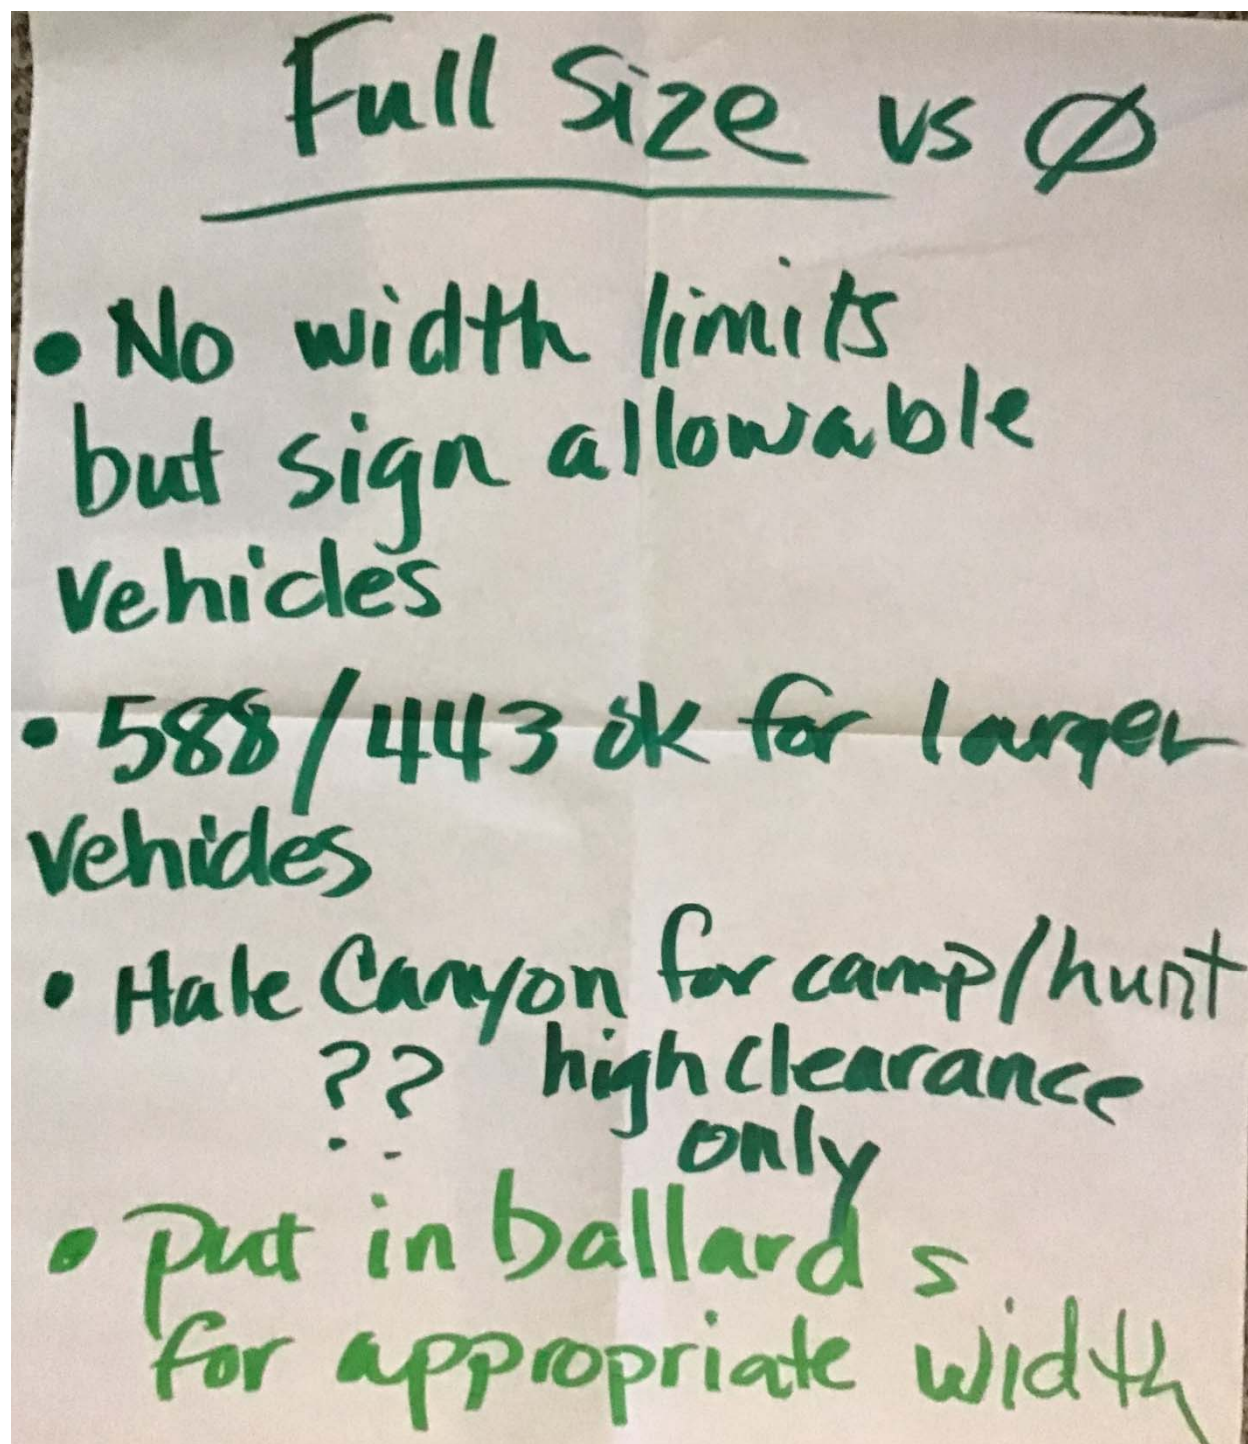 Full Size vs Ø
• No width limits
but sign allowable
vehicles
• 588/443 ok for larger
vehicles
• Hale Canyon for camp/hunt
?? high clearance
only
• put in ballards
for appropriate width